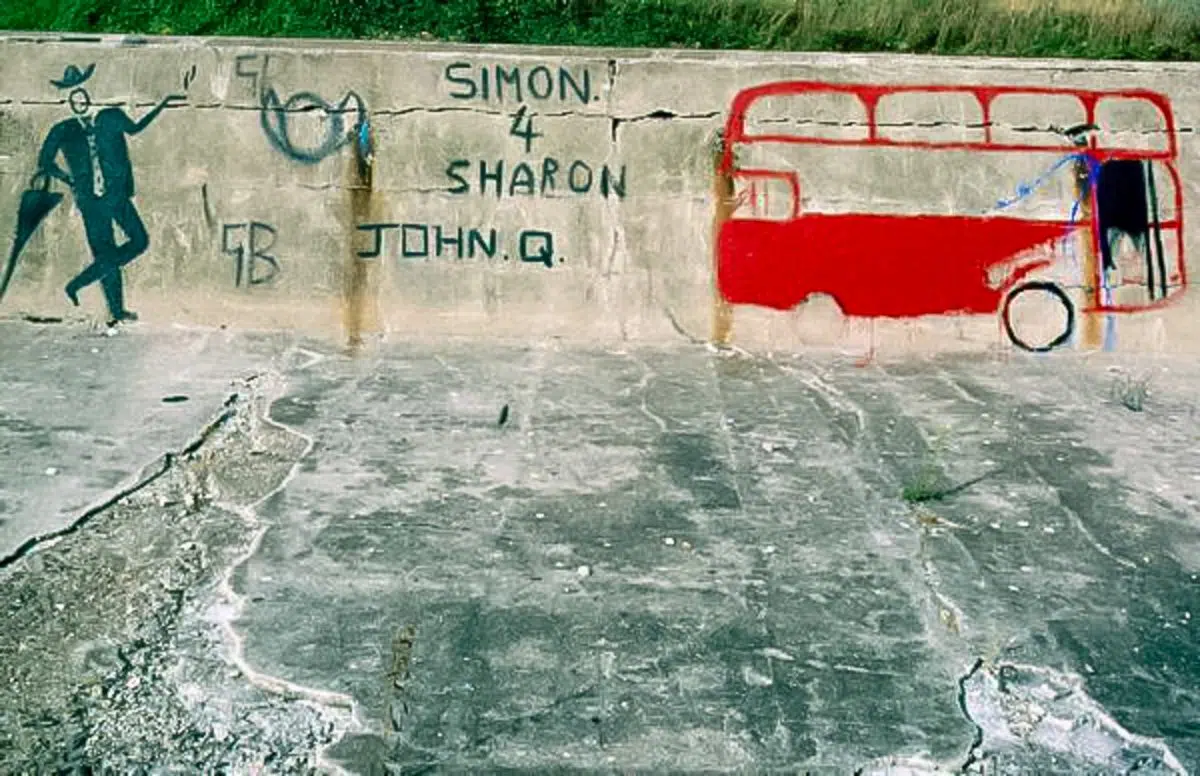 SIMON.
4
SHARON
JOHN.Q.
GB